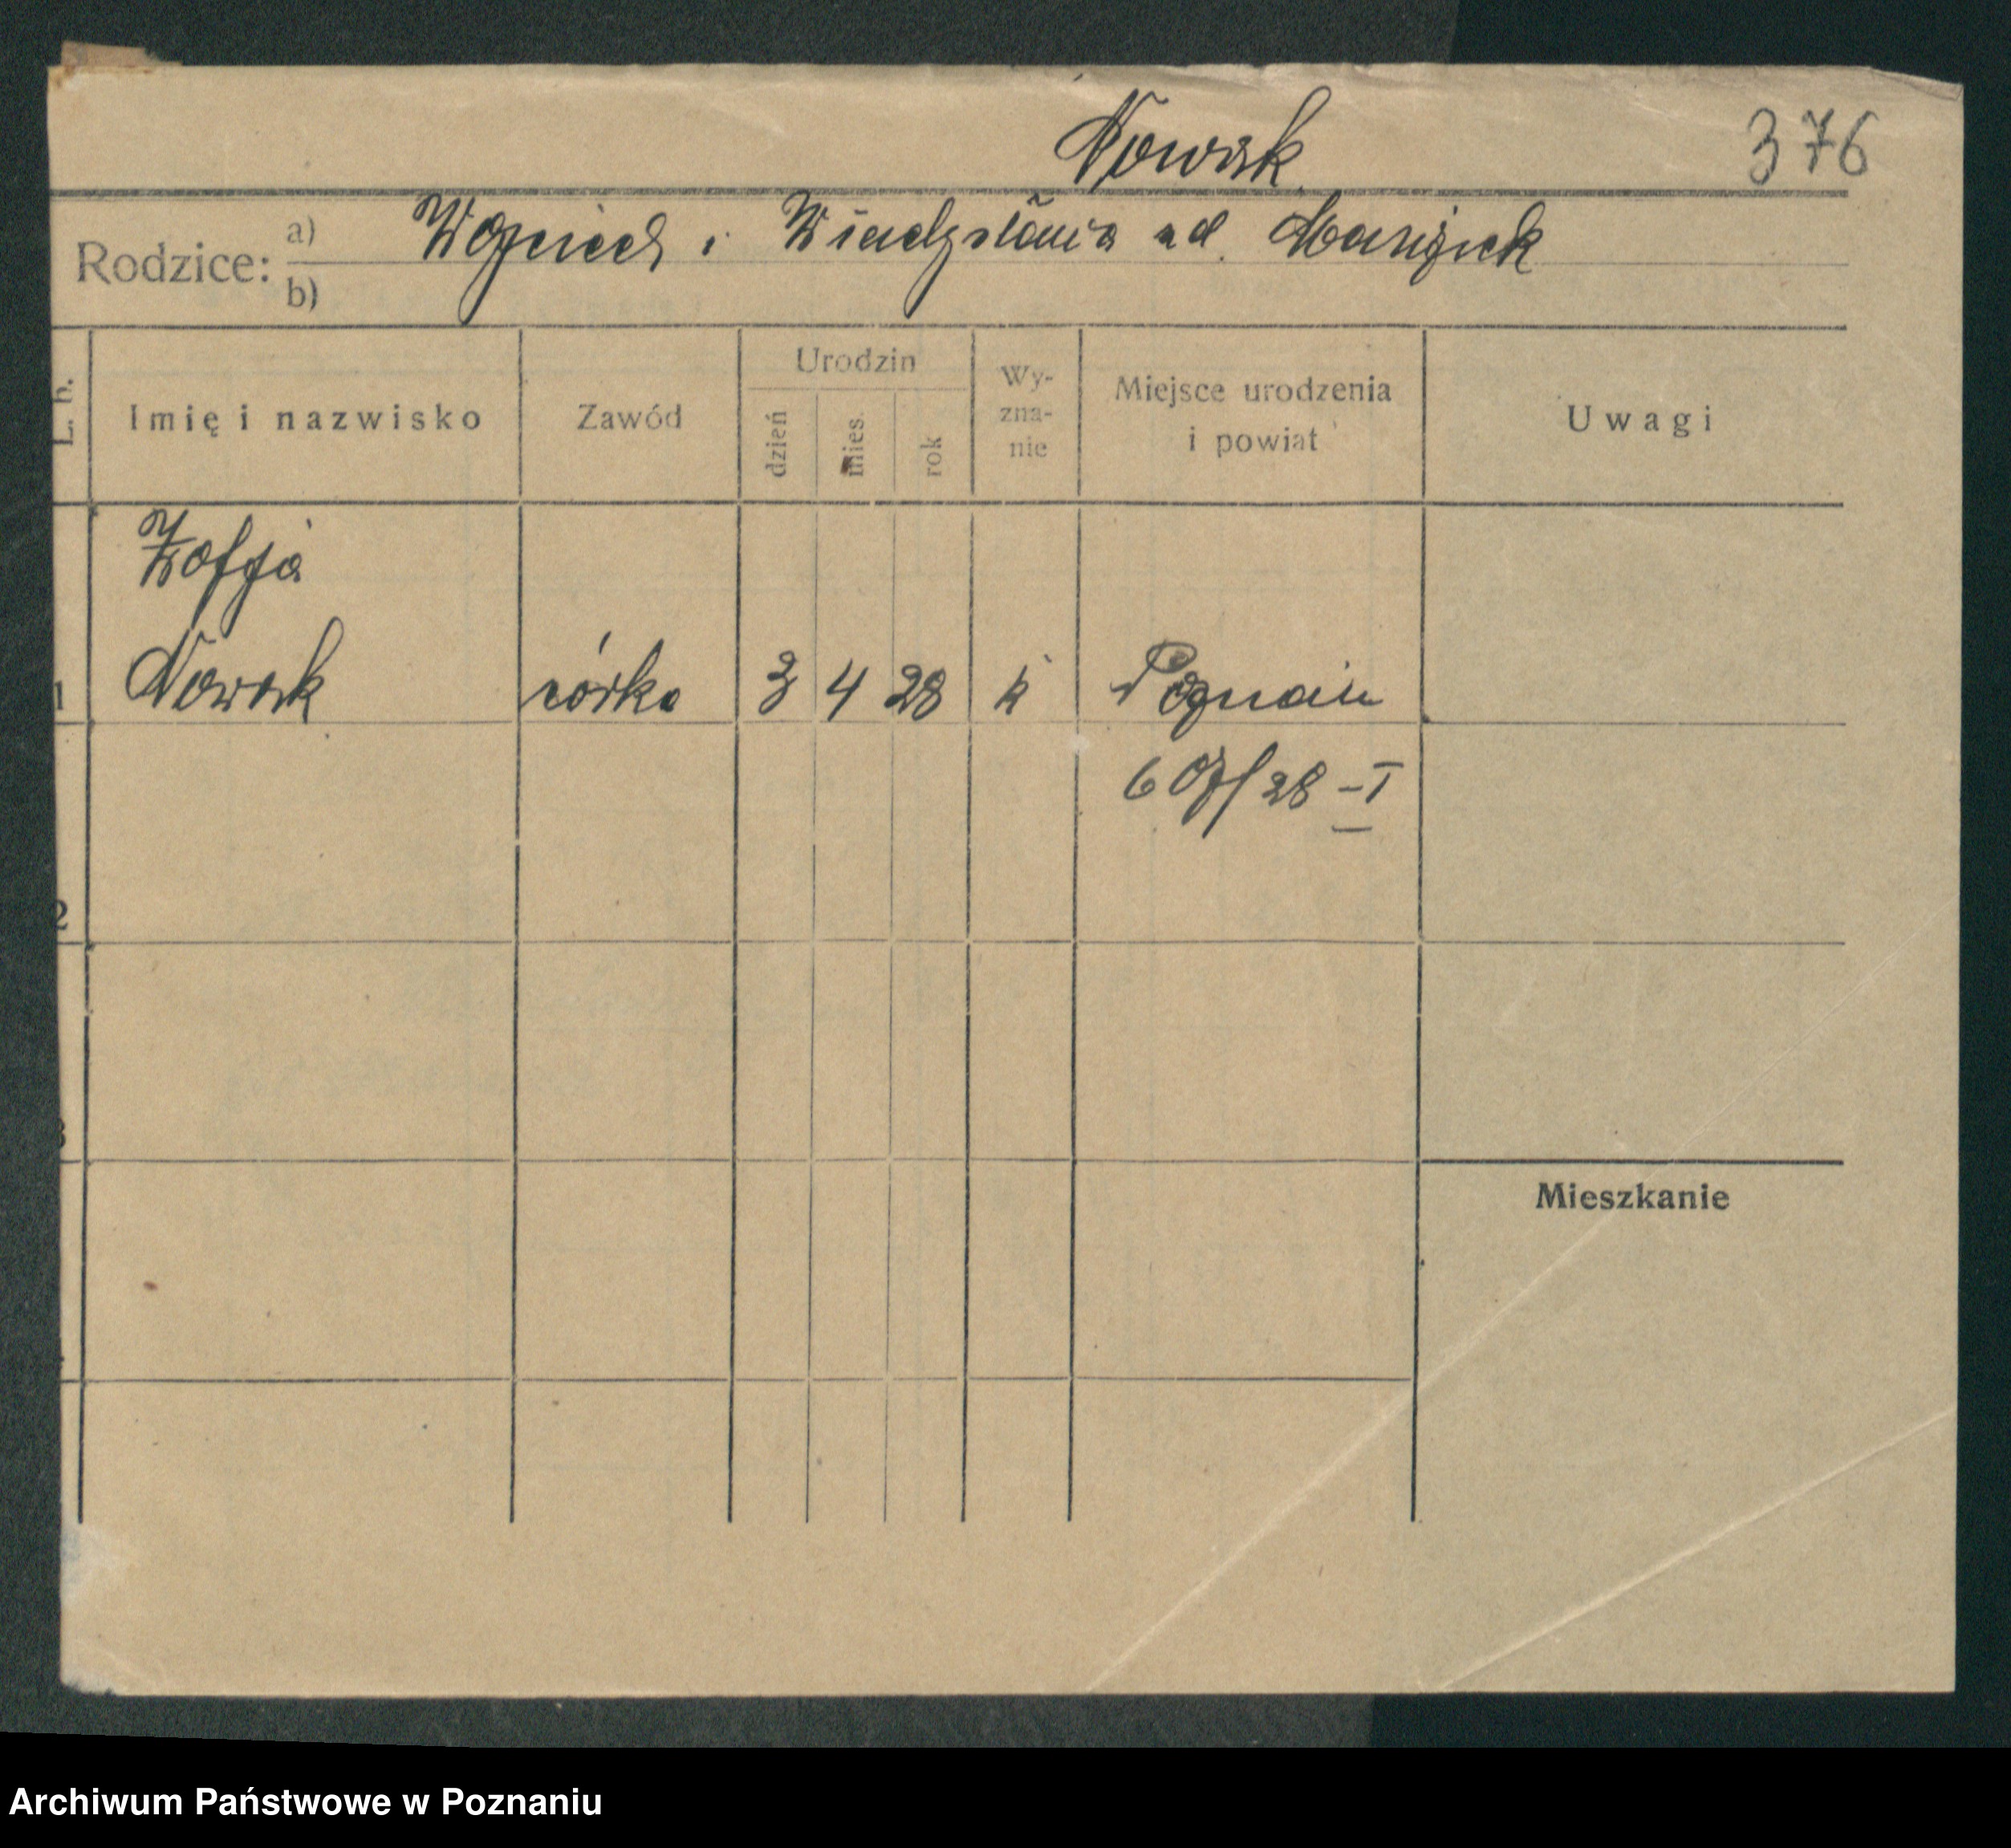 Nowak
376
Rodzice: a) Wojciech i Władysława zd. Marciniak
b)
L. b. Imię i nazwisko Zawód Urodzin dzień mies. rok Wyzna-nie Miejsce urodzenia i powiat Uwagi
Zofja
1 Nowak córka 3 4 28 k Poznań
607/28 – I
2
3
Mieszkanie
Archiwum Państwowe w Poznaniu